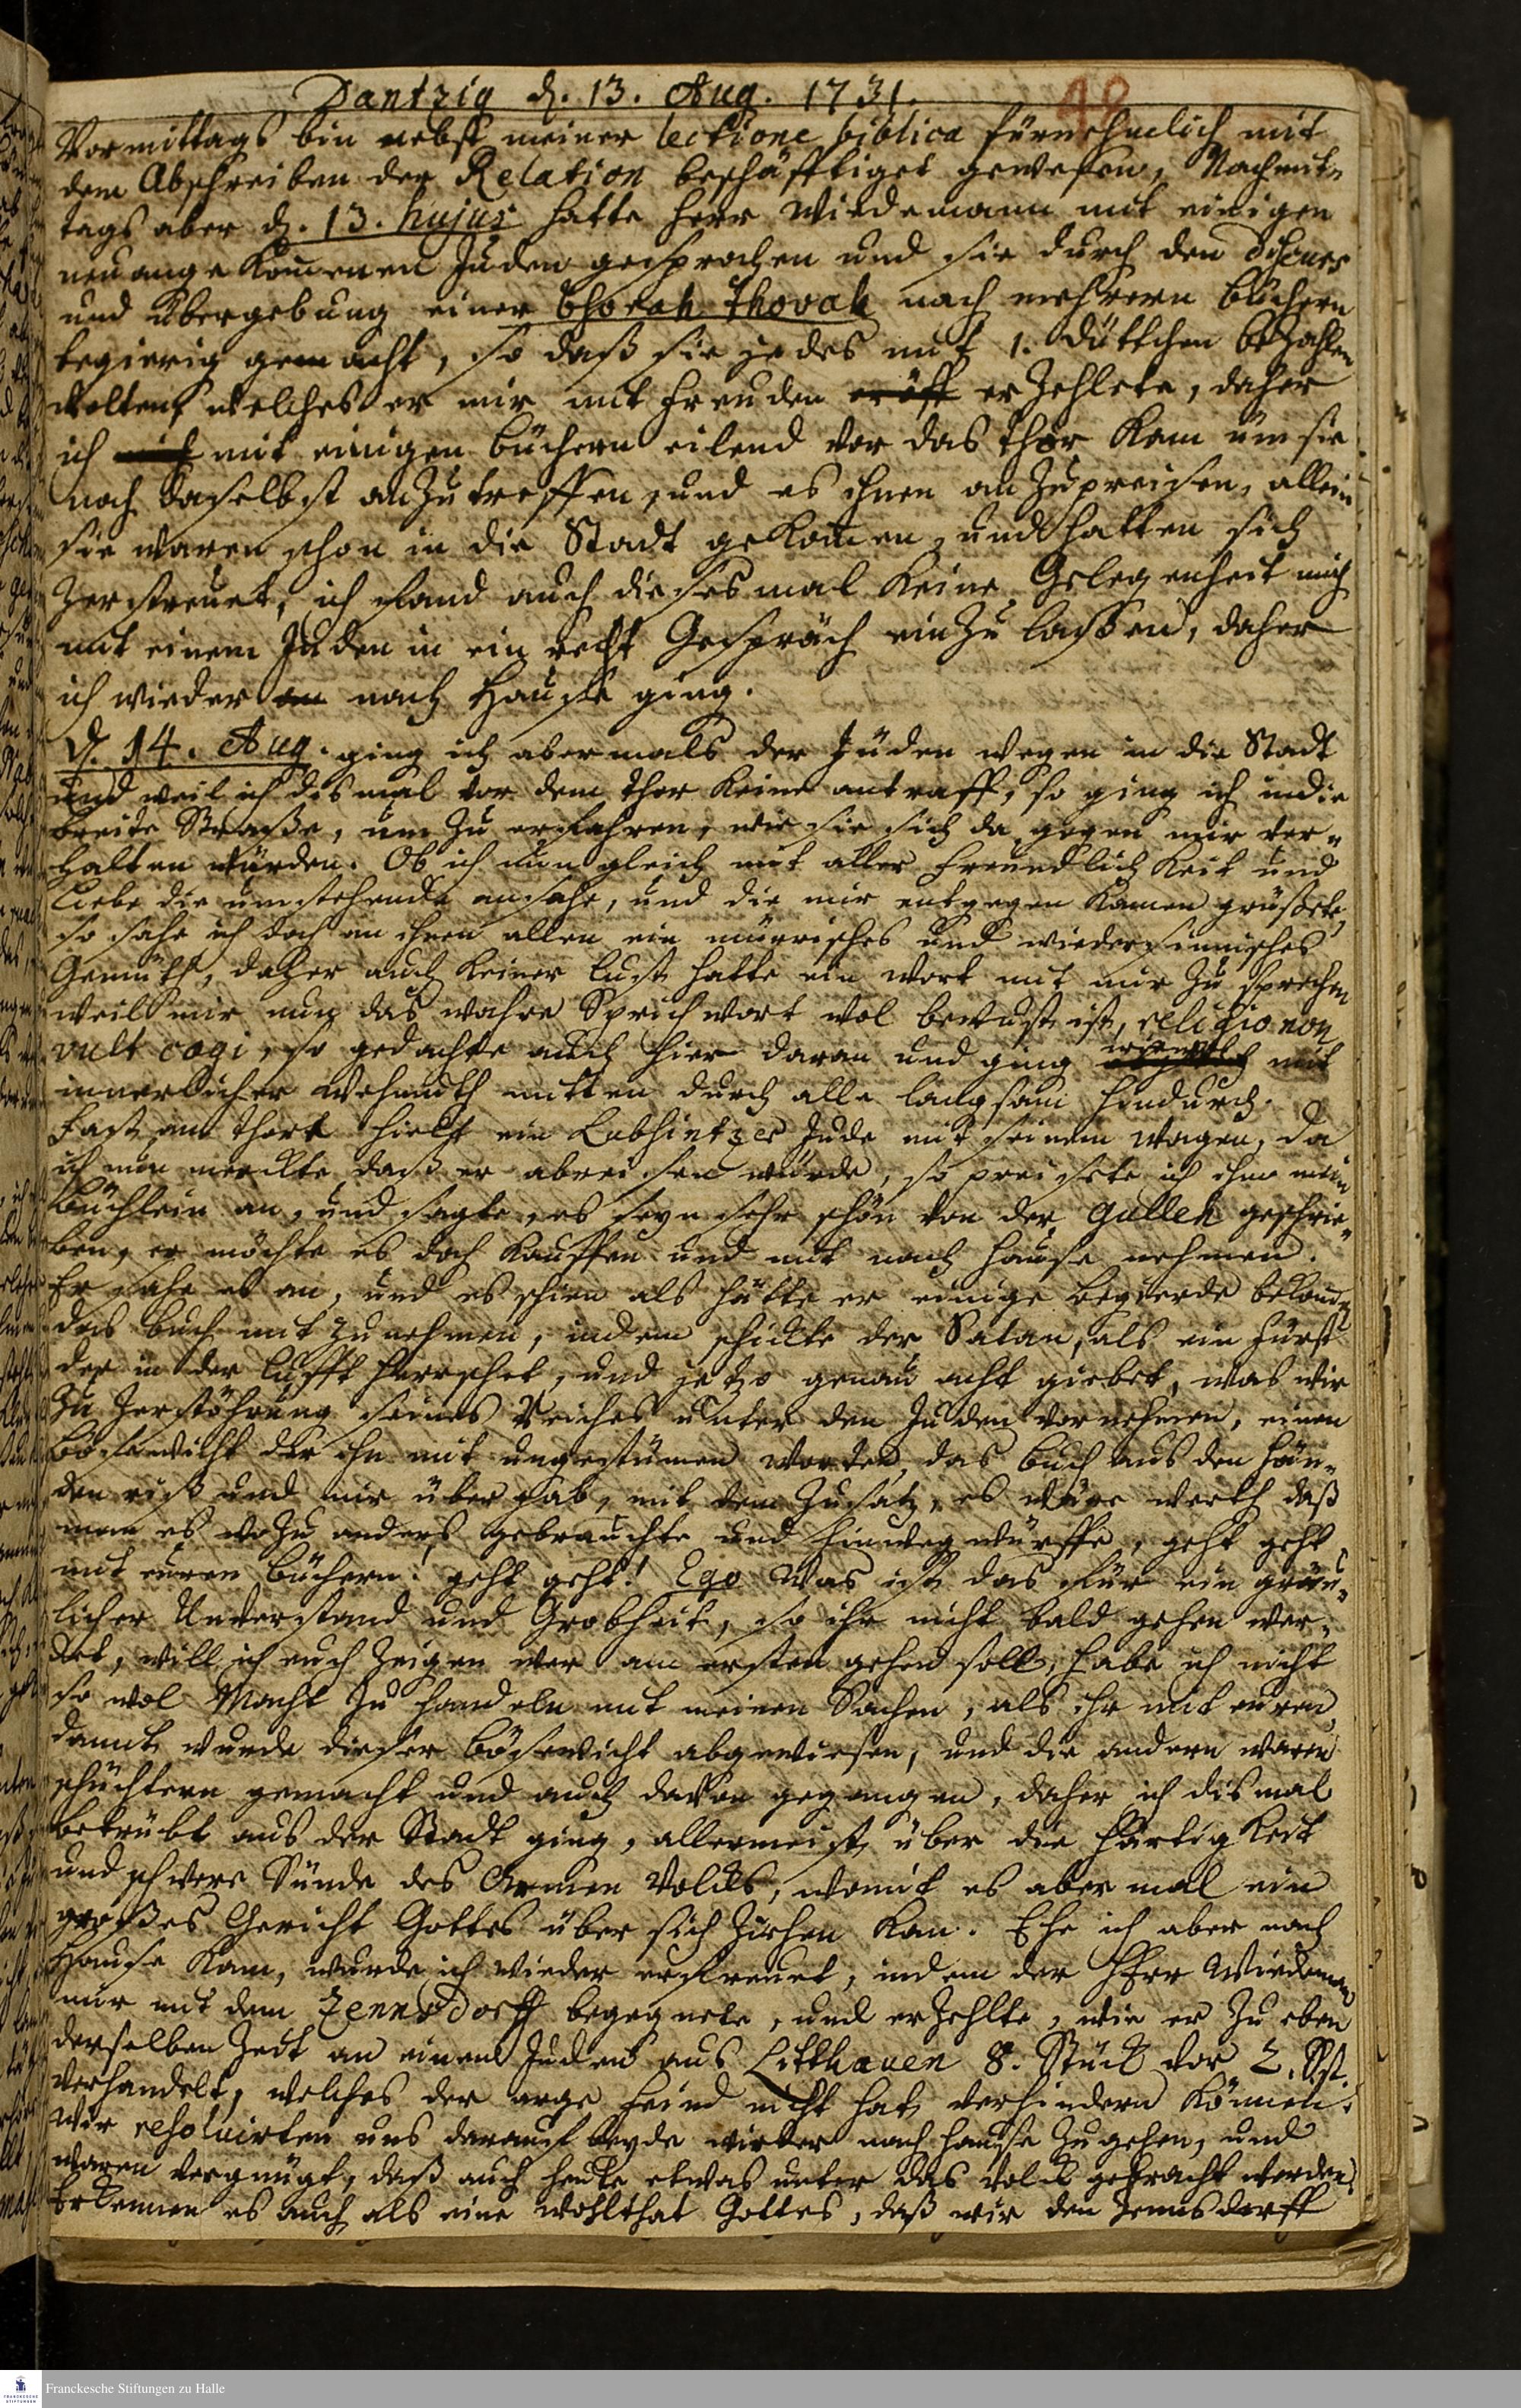 Dantzig d. 13. Aug. 1731.
48
Vormittags bin nebst meiner lectione biblica fürnehmlich mit
dem Abschreiben der Relation beschäfftiget gewesen, Nachmit-
tags aber d. 13. hujus hatte Herr Wiedemann mit einigen
neuangekommenen Juden gesprochen und sie durch den discurs
und übergebung einer bsorah thovah nach mehrern büchern
begierig gemacht, so daß sie jedes mit 1. düttchen bezahlen
wolten, welches er mir mit Freuden eröff erzehlete, daher
ich mit einigen büchern eilend vor das thor kam um sie
noch daselbst anzutreffen, und es ihnen anzupreisen, allein
sie waren schon in die Stadt gekommen, und hatten sich
zerstreuet, ich fand auch dieses mal keine Gelegenheit mich
mit einem Juden in ein recht Gespräch einzulaßen, daher
ich wieder nach Hause ging.
D. 14. Aug. ging ich abermals der Jüden wegen in die Stadt
und weil ich dismal vor dem thor keine antraff, so ging ich in die
breite Straße, um zu erfahren, wie sie sich da gegen mir ver-
halten würden. Ob ich nun gleich mit aller Freundlichkeit und
Liebe die umstehende ansahe, und die mir entgegen kamen grüßete,
so sahe ich doch an ihnen allen ein mürrisches und wiedersinnisches
Gemüth, daher auch keiner lust hatte ein wort mit mir zu sprechen
weil mir nun das wahre Sprichwort wol bewust ist, religio non
vult cogi, so gedachte auch hier daran und ging wiewol mit
innerlicher wehmuth mitten durch alle langsam hindurch.
Fast am thore hielt ein Labhintzer Jude mit seinem wagen, da
ich nun merckte daß er abreisen würde, so preisete ich ihm mein
büchlein an, und sagte, es seyn sehr schön von der gulleh geschrie-
ben, er möchte es doch kauffen und mit nach hause nehmen.
Er sahe es an, und es schien als hätte er einige begierde bekommen
das buch mitzunehmen, indem schickte der Satan, als ein Fürst
der in der lufft herrschet, und jetzo genau acht giebet, was wir
zu zerstöhrung seines Reiches unter den Juden vornehmen, einen
bösewicht der ihn mit ungestümen worten das buch aus den hän-
den riß und mir übergab, mit dem Zusatz, es wäre werth daß
man es wozu anders gebrauchte und hinweg würffe, geht geht
mit euren büchern! geht geht! Ego Was ist das für ein gräu-
licher Unverstand und Grobheit, so ihr nicht bald gehen wer-
det, will ich euch zeigen wer am ersten gehen soll, habe ich nicht
so wol Macht zu handeln mit meinen Sachen, als ihr mit euren,
damit wurde dieser bösewicht abgewiesen, und die andern waren
schüchtern gemacht und auch davon gegangen, daher ich dismal
betrübt aus der Stadt ging, allermeist über die härtigkeit
und schwere Sünde des Armen Volcks, womit es abermal ein
großes Gericht Gottes über sich ziehen kan. Ehe ich aber nach
Hause kam, wurde ich wieder erfreuet, indem der Herr Wiedemann
mir mit dem Zennsdorff begegnete, und erzehlte, wie er zu eben
derselben Zeit an einem Juden aus Litthauen 8. Stück vor 2.
verhandelt, welches der arge Feind nicht hat verhindern können.
Wir resolvirten uns darauf beyde wieder nach hause zugehen, und
waren vergnügt, daß auch heute etwas unter das volck gebracht worden
Erkennen es auch als eine wohlthat Gottes, daß wir den Zennsdorff
Franckesche Stiftungen zu Halle